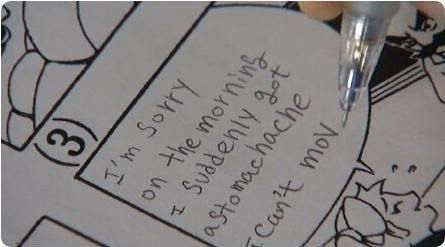 (3)
I'm sorry
on the morning
I suddenly got
astomachache
I can't mov